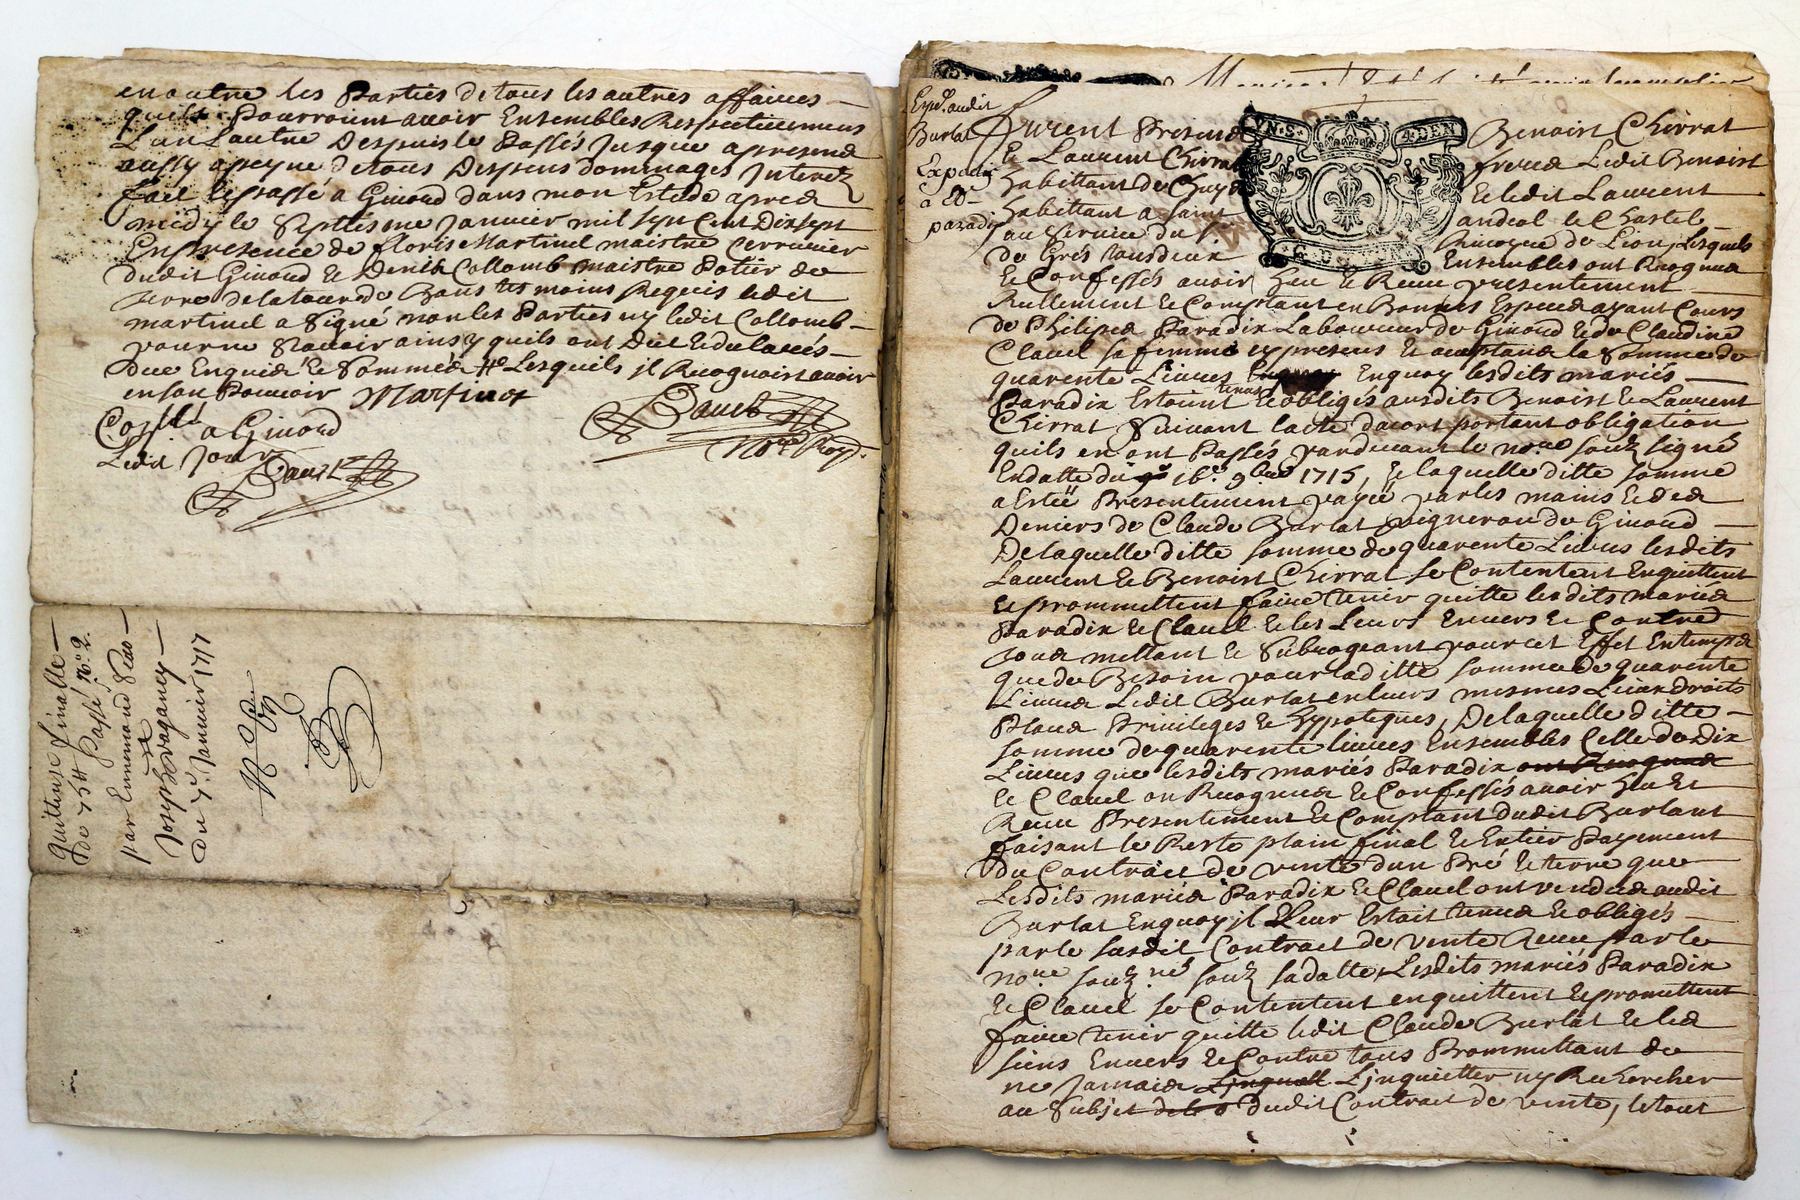 en outre les Parties de tous les autres affaires
quils Pourroint avoir Ensembles Respectivement
L'un L'autre Despuis le Passés Jusque apresend
aussy apeyne de tous Despens dommages Interez
fait & passé a Givord dans mon Estude apres
midy le septiesme Janvier mil sept Cent Dixsept
En presence de floris Martinel maistre cerrurier
dudit Givord & Denis Collomb maistre Potier de
martinel a Signé non les Parties ny ledit Collomb
pour ne Scavoir ainsy quils ont
Due Enquis & Sommés Lesquils jl Recognoist avoir
en son Pouvoir Martinel
a Givord
Ledit Jour
Quittense finalle
de 75 ʰ Passé
par Enemond
Joseph Vaganey
du 7e Janvier 1717
Expé audit
Burlat
Expedié
a
paradix
furent Presend Benoist Chirrat
& Laurent Chirrat frered Ledit Benoist
habittant de & ledit Laurent
habittant a Saint andeol le Chastel
au Service du Sr de Lion, Lesquels
de Grés tous deux Ensembles ont Recognus
& Confessés avoir heu & Receu presentement
Reellement & Comptant en Bonnes Especed ayant Cours
de Philiped Paradix Laboureur de Givord & de Claudine
Clavel sa femme cy presens & aceptand la Somme de
quarente Livres Enquoy lesdits mariés
Paradix Estoint tenus & obligés ausdits Benoist & Laurent
Chirrat Suivant l'acte dacort portant obligation
quils en ont Passés pardevant le nore souz signé
En datte du 16e 9bre 1715, & laquelle ditte somme
a Estée Presentement payée par les mains & ded
Deniers de Claude Burlat vigneron de Givord
De laquelle ditte somme de quarente Livres lesdits
Laurent & Benoist Chirrat se Contentent Enquittent
& promettent faire tenir quitte lesdits mariéd
Paradix & Clavel & les Leurs Envers & Contre
toud mettant & Subrogeant pour cet Effet En tempsd
que de Besoin pour la ditte somme de quarente
Livred Ledit Burlat en leurs mesmes Lieu droits
Placed Privileges & hypoteques, De laquelle ditte
somme de quarente livres Ensembles Celle de Dix
Livres que lesdits mariés Paradix ont Recognud
& Clavel on Recognud & Confessés avoir heu &
Receu Presentement & Comptant dudit Burlant
faisant le Reste plain final & Entier Payement
Du Contract de vente dun Pré & terre que
Lesdits mariéd Paradix & Clavel ont vendud audit
Burlat Enquoy jl Leur Estait tenud & obligés
par le susdit Contract de vente Receu par le
nore souz né souz sa datte, Lesdits mariés Paradix
& Clavel se Contentent enquittent & promettent
faire tenir quitte ledit Claude Burlat & led
siens Envers & Contre tous Promettant de
ne Jamaid Linquietter ny Rechercher
au Subjet dudit Contract de vente, le tout